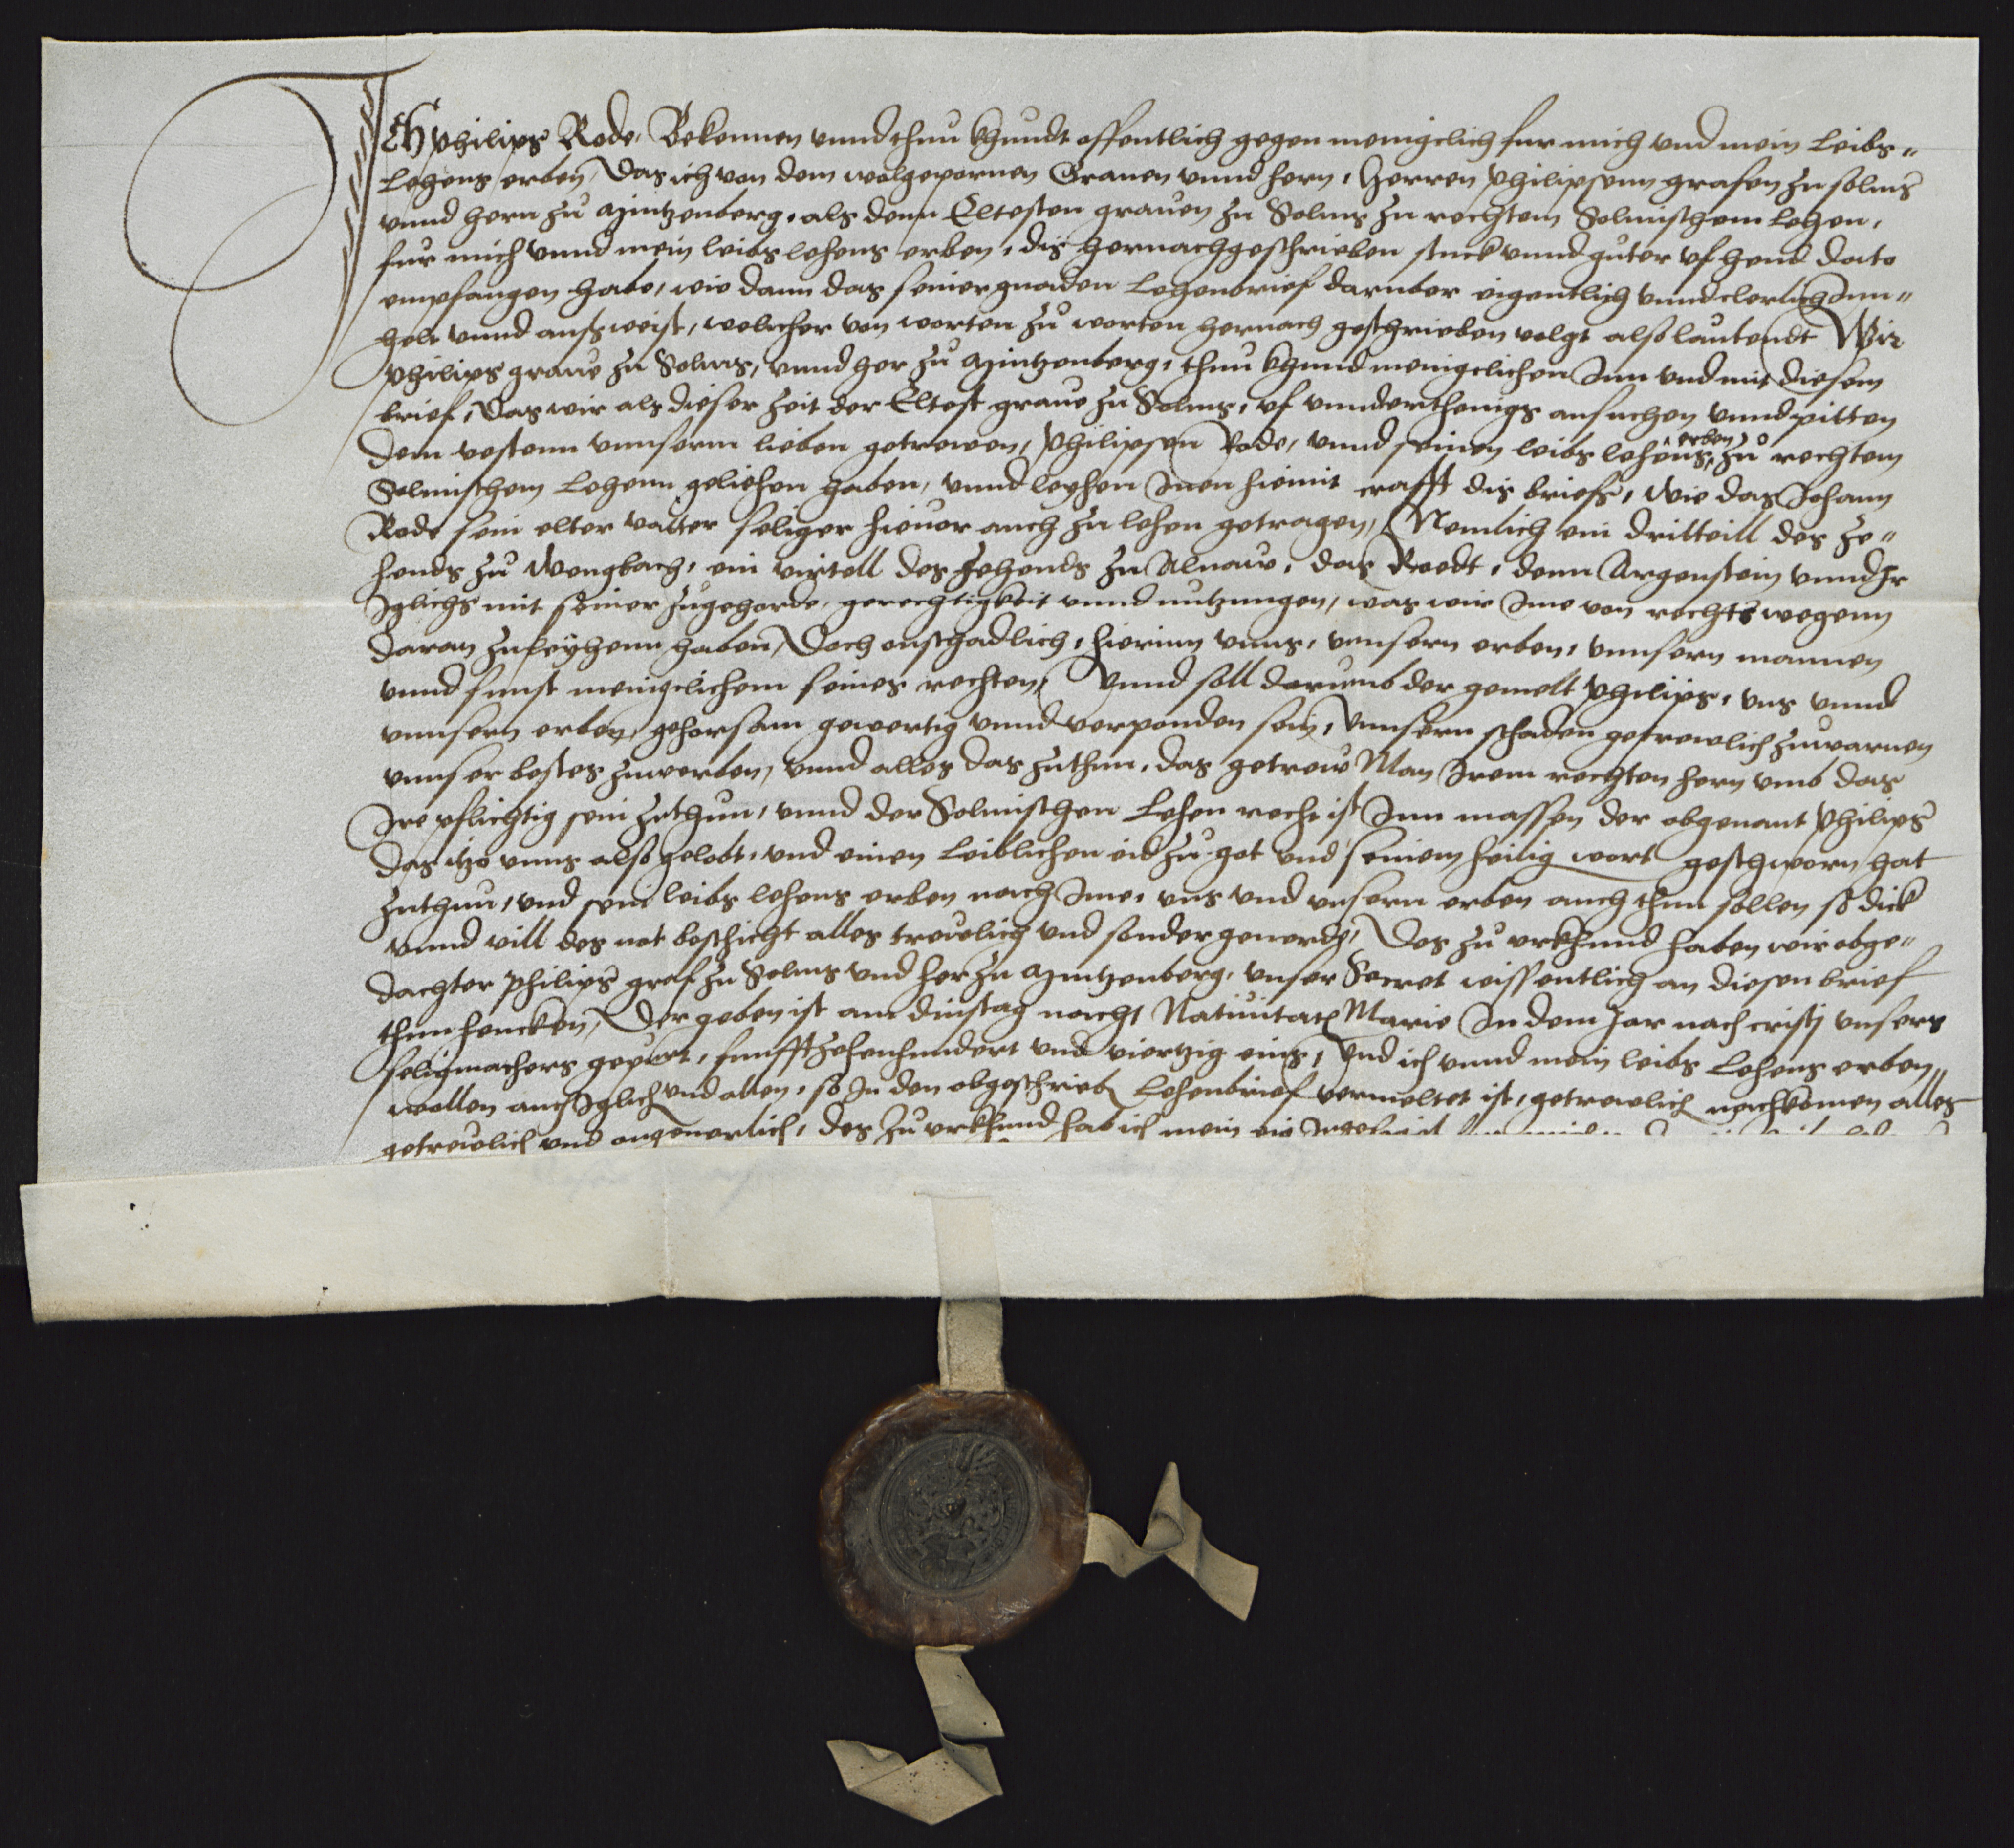 ICH Philips Rode, Bekennen vnnd thuu khundt offentlich gegen meniglich fur mich vnd mein leibs„
lehens erben, Das ich von dem wolgepornen Grauen vnnd hern, Herren Philipsenn grafen zu solms
vnnd hern zu Mintzenberg, als denn Eltesten grauen zu Solms zu rechtem Solmischem lehen,
fur mich vnnd mein leibs lehens erben, dis hernachgeschrieben stuck vnnd guter vf heud dato
empfangen habe, wie dann das seiner gnaden lehenbrief daruber eigentlich vnnd clerlich Inn„
helt vnnd ausweist, welicher von worten zu worten hernach geschrieben volgt also lautendt Wir
Philips graue zu Solms, vnnd her zu Mintzenberg, thuu khund meniglichen Inn vnd mit diesem
brief, Das wir als dieser zeit der Eltest graue zu Solms, vf vnnderthenigs ansuchen vnnd pitten
dem vestenn vnnserm lieben getrewen, Philipsen Rode, vnnd seinen leibs lehens erben zu rechtem
Solmischem lehenn geliehen haben, vnnd leyhen Inen hiemit crafft dis briefs, wie das Johann
Rode sein elter vatter seliger hieuor auch zu lehen getragen, Nemlich ein dritteill des Ze„
hends zu Wengbach, ein virtell des zehends zu Alnaue, das Roedt, denn Argenstein vnnd Ir
Iglichs mit seiner zugehorde, gerechtigkeit vnnd nutzungen, was wir Ime von rechts wegenn
daran zuleyhenn haben, Doch onschadlich, hierinn vnns, vnnsern erben, vnnsern mannen
vnnd sunst meniglichem seines rechten, Vnnd soll darumb der gemelt Philips, vns vnnd
vnnsern erben, gehorsam gewertig vnnd verponden sein, vnnsern schaden getrewlich zuwarnen
vnnser bestes zuwerben, vnnd alles das zuthun, das getrew Man Irem rechten hern vmb das
Ire pflichtig sein zuthun, vnnd der Solmischen lehen recht ist Inn massen der obgenant Philips
das itzo vnns also gelobt, vnd einen leiblichen eid zu got vnd seinem heilig wort geschworn hat
zuthun, vnd sein leibs lehens erben nach Ime, vns vnd vnsern erben auch thun sollen so dick
vnnd vill des not beschicht alles trewlich vnd sonder geuerde, Des zu vrkhund haben wir obge„
dachter Philips graf zu Solms vnd her zu Mintzenberg, vnser Secret wissentlich an diesen brief
thun hencken, Der geben ist am dinstag nachs Natiuitatis Marie In dem Jar nach cristj vnsers
seligmachers gepurt, funffzehenhundert vnd viertzig eins, Vnd ich vnnd mein leibs lehens erben„
wollen auch Iglich vnd allen, so In den obgeschrieben lehenbrief vermeltet ist, getrewlich nachkomen alles
getrewlich vnd ongeuerlich, des zu vrkhund hab ich mein eig Ingesigel